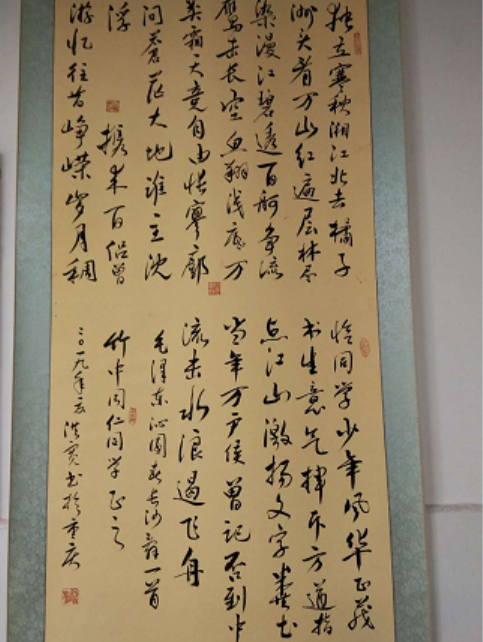 独立寒秋湘江北去橘子
洲头看万山红遍层林尽
染漫江碧透百舸争流
鹰击长空鱼翔浅底万
类霜天竟自由怅寥廓
问苍茫大地谁主沉
浮
携来百侣曾
游忆往昔峥嵘岁月稠
恰同学少年风华正茂
书生意气挥斥方遒指
点江山激扬文字粪土
当年万户侯曾记否到中
流击水浪遏飞舟
毛泽东沁园春长沙一首
竹中同仁同学正之
二〇一九年洪书于重庆